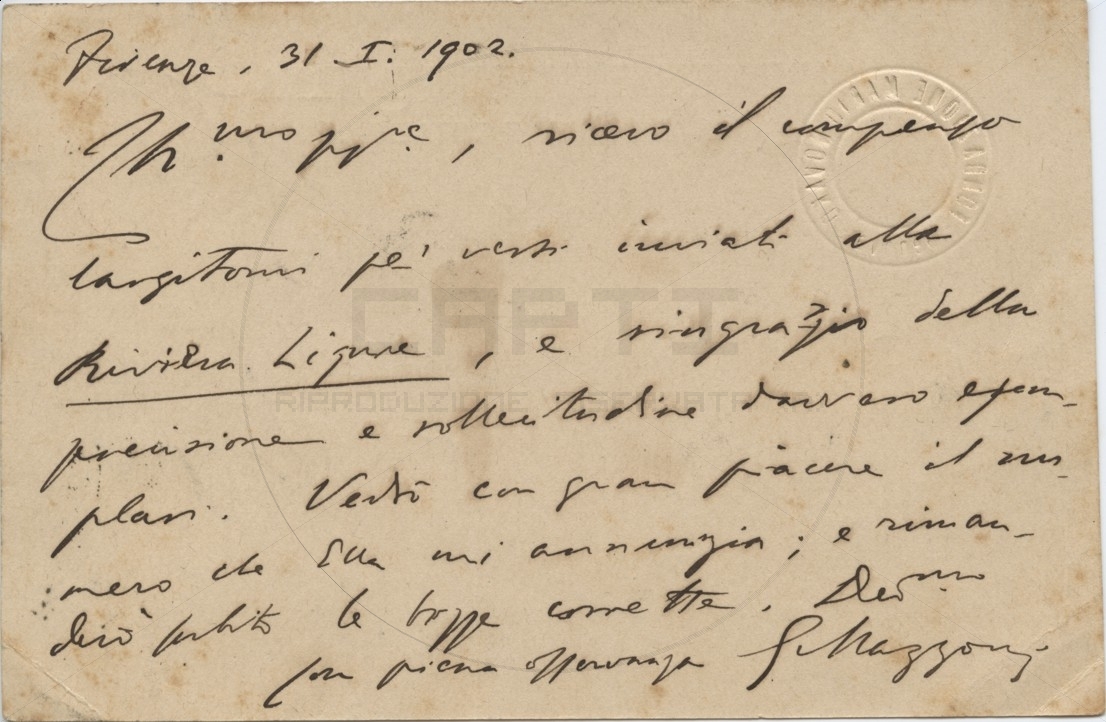 Firenze, 31 I. 1902.
Ill.mo Sig.re, ricevo il compenso
largitomi pe' versi inviati alla
Riviera Ligure, e ringrazio della
precisione e sollecitudine davvero esem-
plari. Vedrò con gran piacere il nu-
mero che Ella mi annunzia; e riman-
derò subito le bozze corrette. Dev.mo
con piena osservanza G Mazzoni
CARTI
RIPRODUZIONE RISERVATA